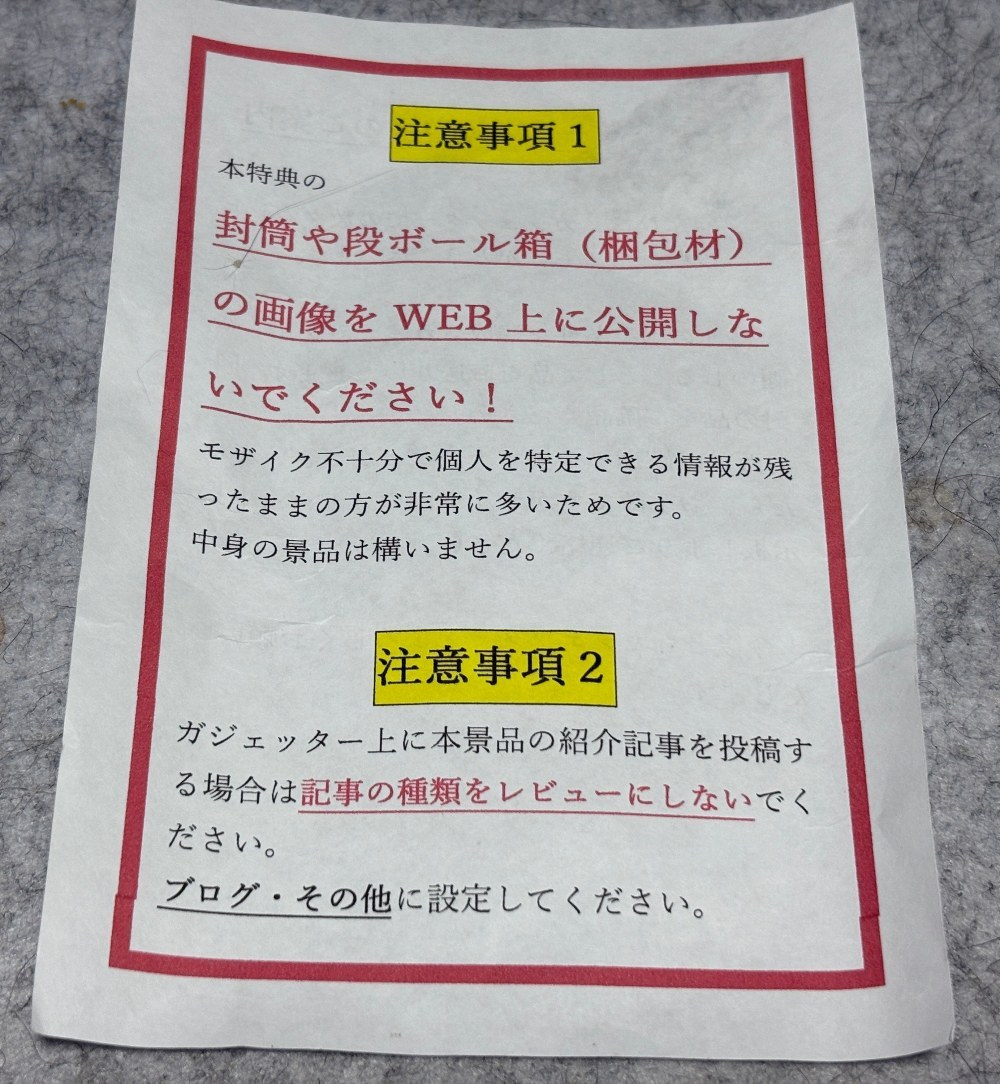 注意事項1
本特典の
封筒や段ボール箱（梱包材）
の画像をWEB上に公開しな
いでください！
モザイク不十分で個人を特定できる情報が残
ったままの方が非常に多いためです。
中身の景品は構いません。
注意事項2
ガジェッター上に本景品の紹介記事を投稿す
る場合は記事の種類をレビューにしないでく
ださい。
ブログ・その他に設定してください。